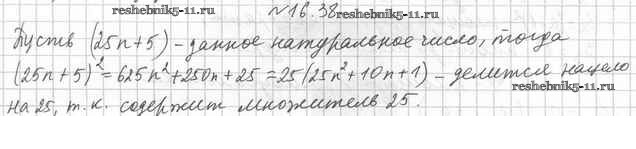 reshebnik5-11.ru №16.38 reshebnik5-11.ru
Пусть (25n+5) – данное натуральное число, тогда
(25n+5)² = 625n² + 250n + 25 = 25(25n² + 10n + 1) – делится нацело
на 25, т.к. содержит множитель 25. reshebnik5-11.ru